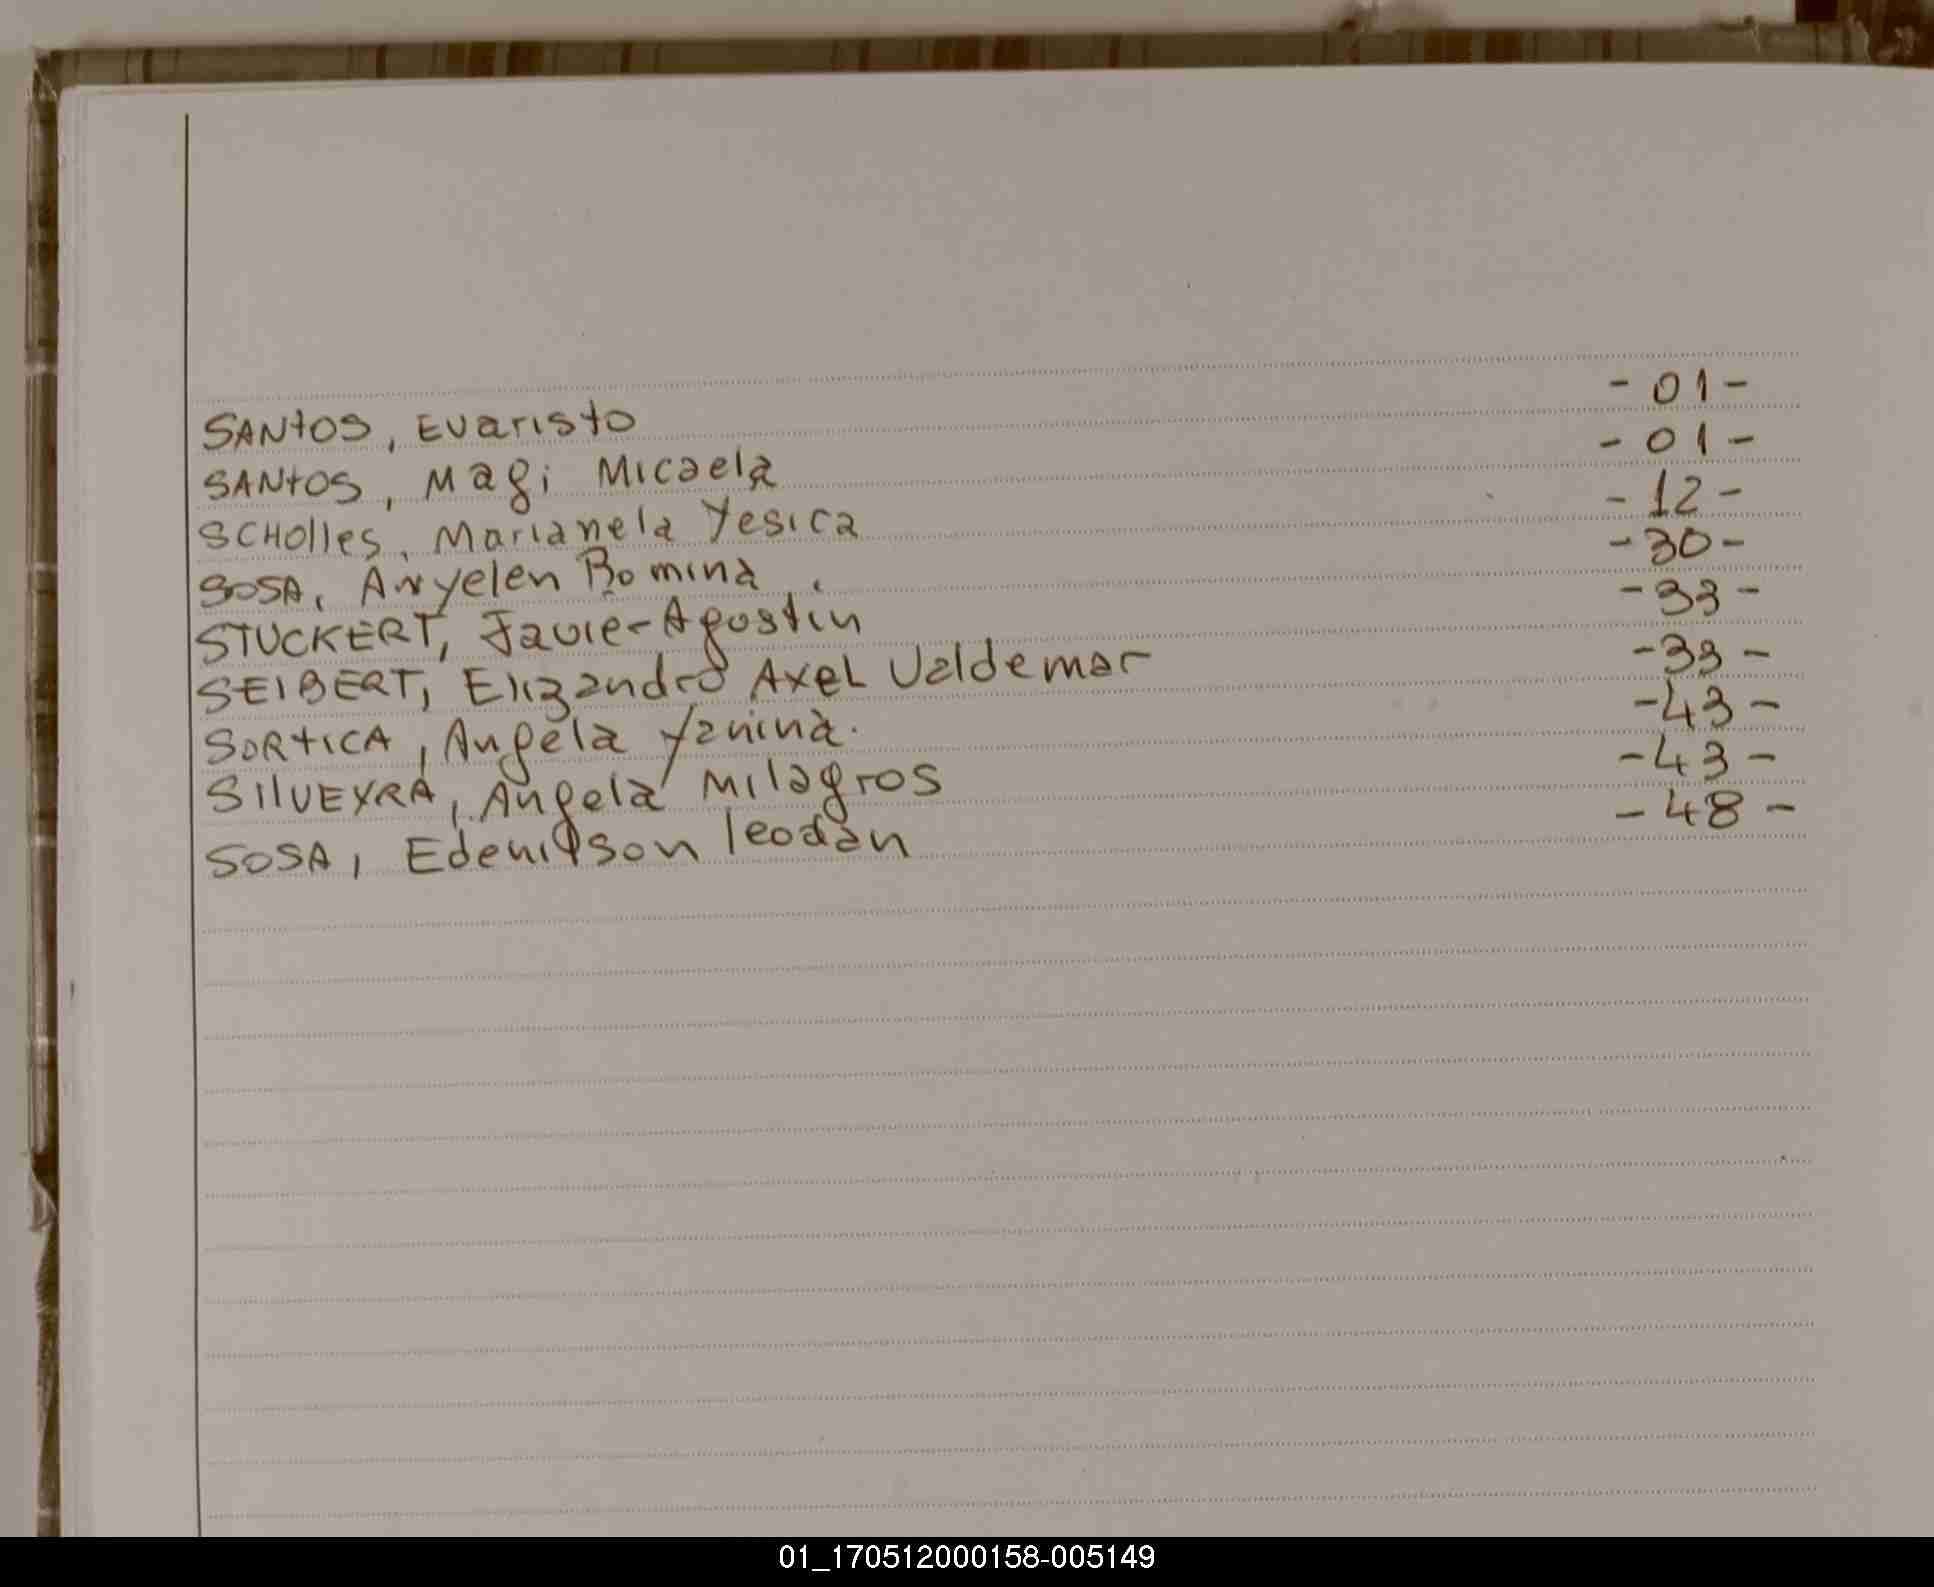 SANTOS, Evaristo -01-
SANTOS, Magi Micaela -01-
SCHOLLES, Marianela Yesica -12-
SOSA, Anyelen Romina. -30-
STUCKERT, Javier Agostin -33-
SEIBERT, Elizandro Axel Valdemar -33-
SORTICA, Angela Yanina. -43-
SILVEYRA, Angela Milagros -43-
SOSA, Edenilson leodan -48-
01_170512000158-005149